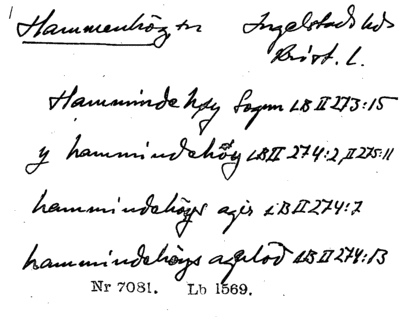 Hammenhög sn Ingelstads hd
Krist. l.
Hamminde høy Sogn LB II 273:15
y hammindehöy LB II 274:2, II 275:11
hammindehøys agis LB II 274:7
hammindehöys LB II 274:13
Nr 7081. Lb 1569.